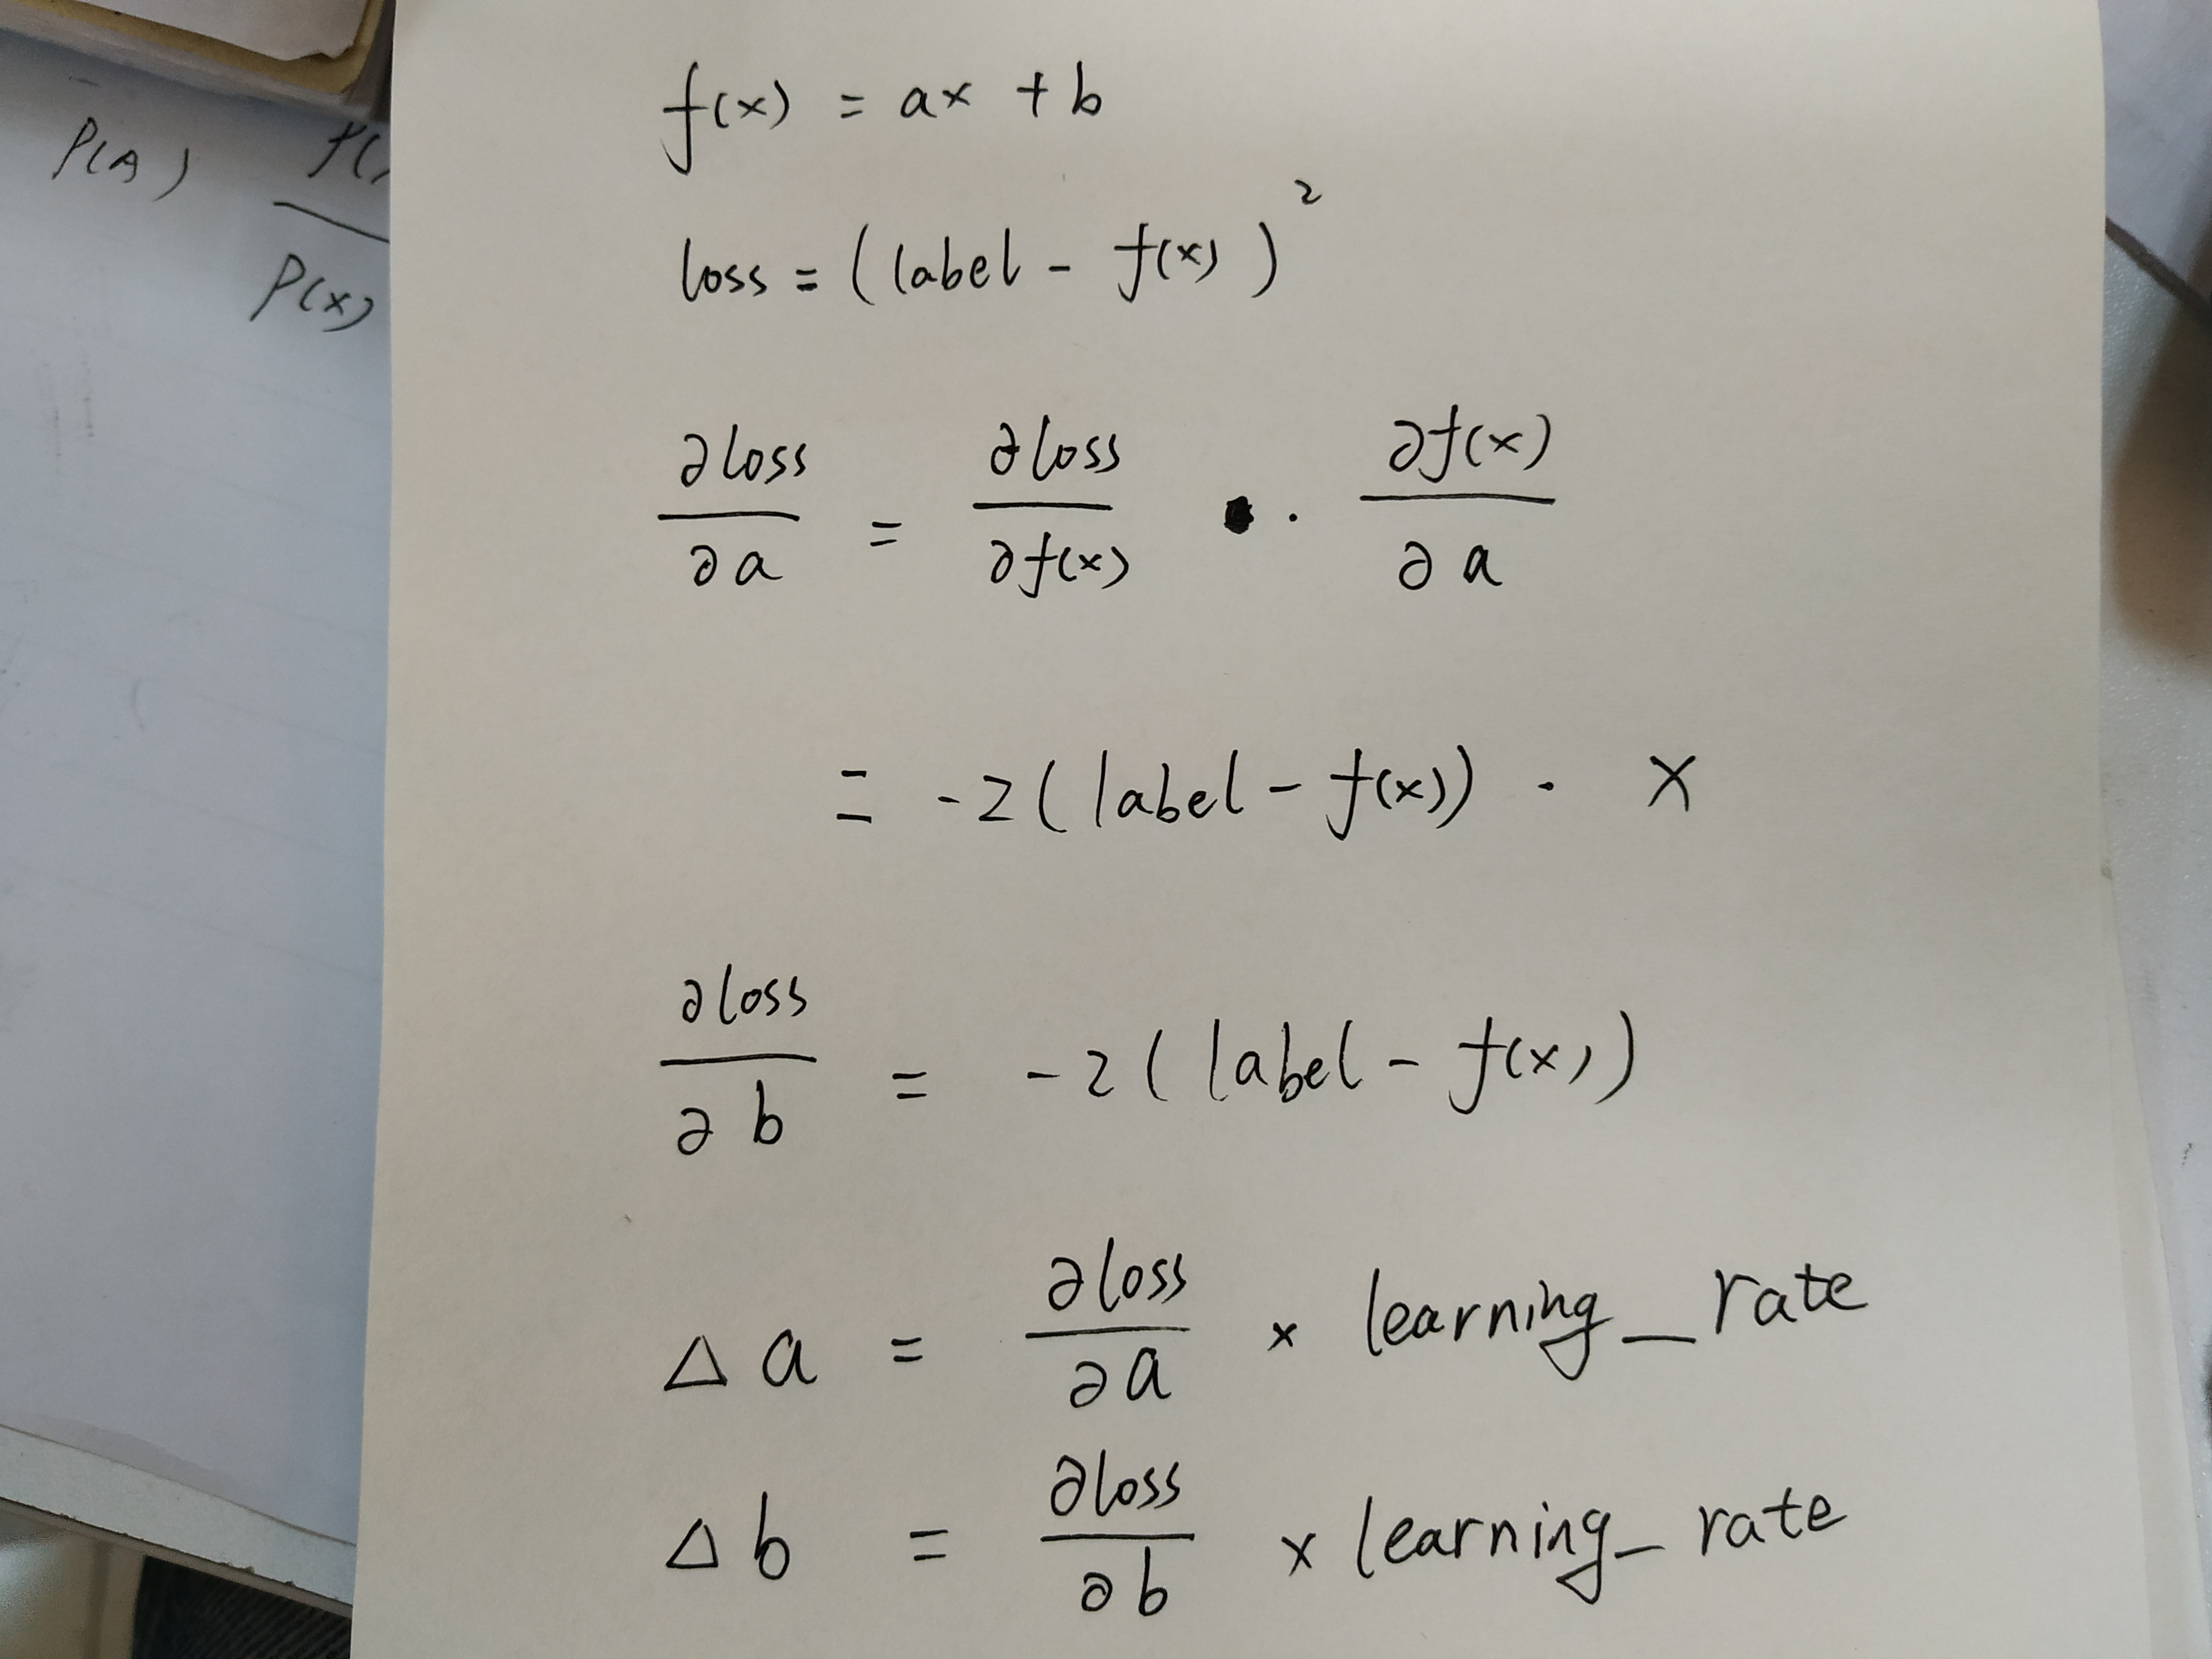 P(A) f(
P(x)
f(x) = ax + b
loss = (label - f(x))²
∂loss/∂a = ∂loss/∂f(x) · ∂f(x)/∂a
= -2(label - f(x)) · x
∂loss/∂b = -2(label - f(x))
Δa = ∂loss/∂a × learning_rate
Δb = ∂loss/∂b × learning_rate